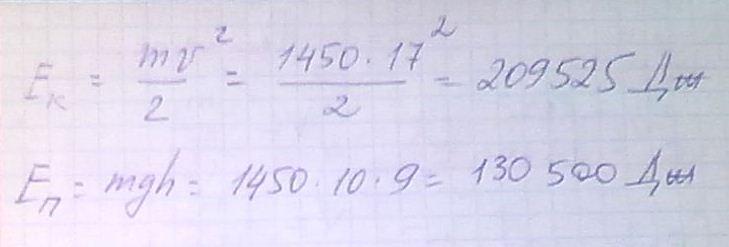 Eк = mv²/2 = 1450·17²/2 = 209525 Дж
Eп = mgh = 1450·10·9 = 130 500 Дж